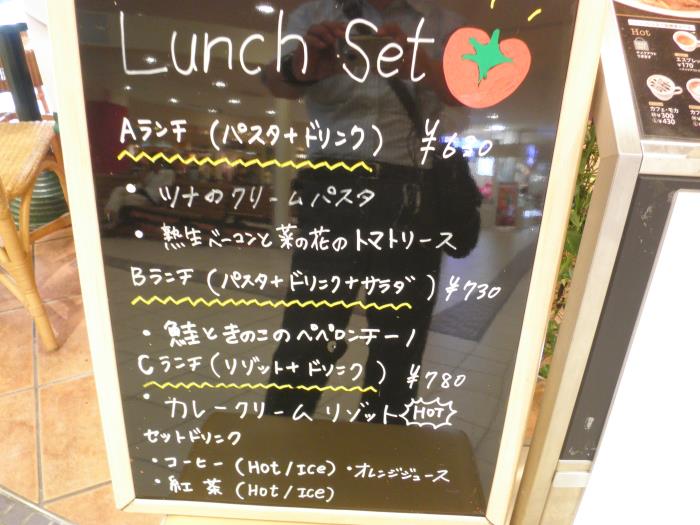 Lunch Set
Aランチ (パスタ+ドリンク) ¥630
・ツナのクリームパスタ
・熟生ベーコンと菜の花のトマトソース
Bランチ (パスタ+ドリンク+サラダ) ¥730
・鮭ときのこのペペロンチーノ
Cランチ (リゾット+ドリンク) ¥780
・カレークリームリゾット HOT
セットドリンク
・コーヒー (Hot/Ice) ・オレンジジュース
・紅茶 (Hot/Ice)
Hot
エスプレッソ
¥170
カフェ・モカ
¥300
¥430